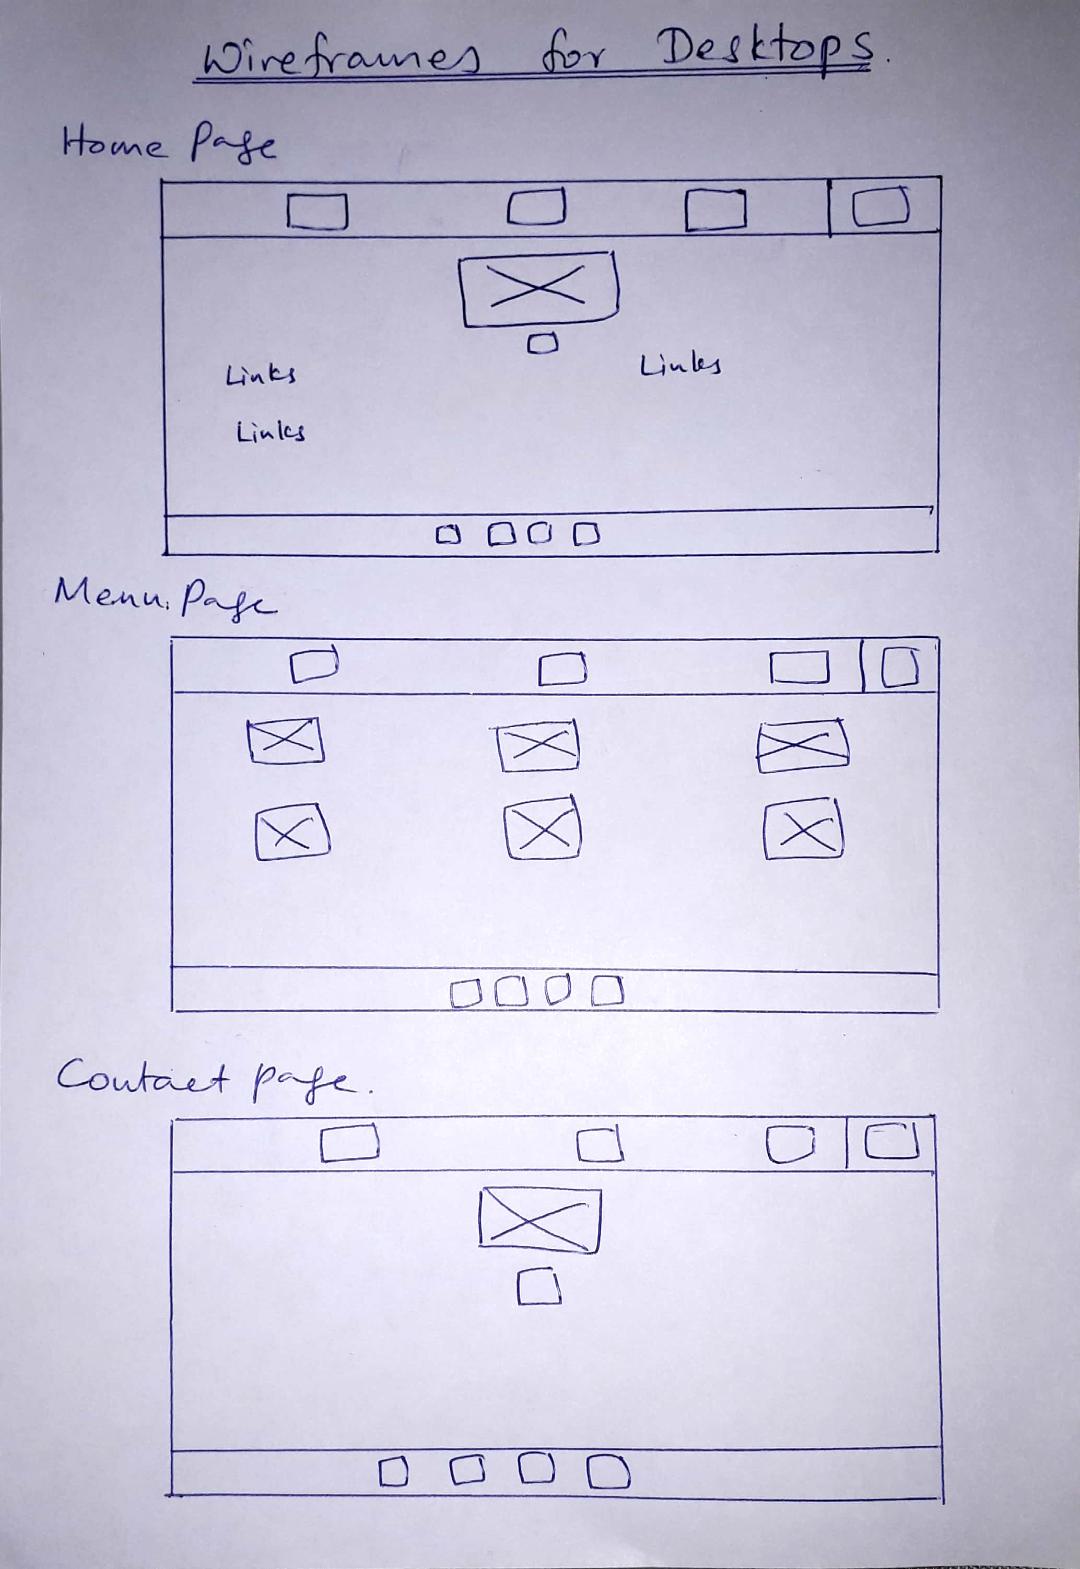 Wireframes for Desktops.
Home Page
Links
Links
Links
Menu Page
Contact page.